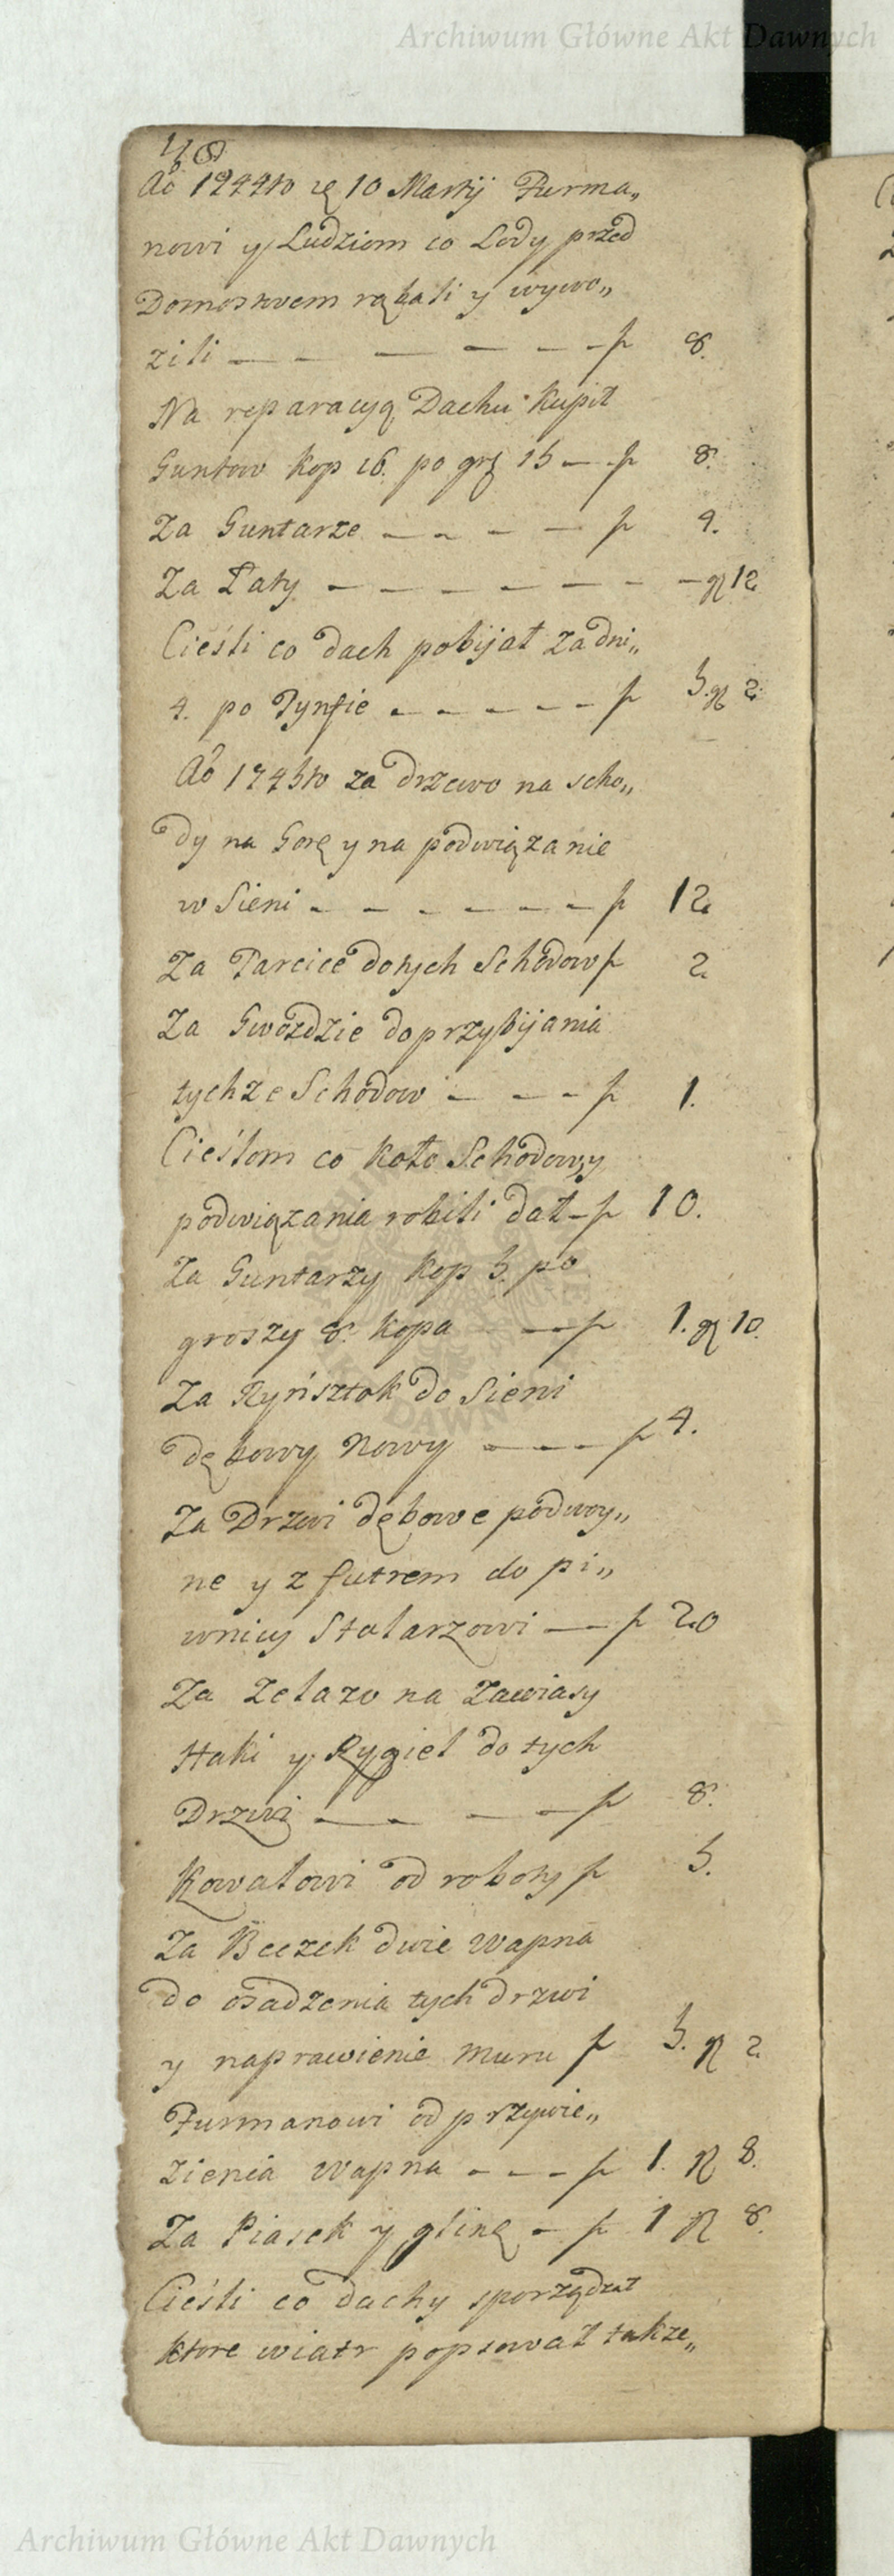 Archiwum Główne Akt Dawnych
Ao 1744to 10 Martij Furma„
nowi y Ludziom co Lody przed
Domostwem rąbali y wywo„
zili — — — — — — f 8.
Na reparacyą Dachu Kupił
Guntow Kop 16. po gr 15 — f 8.
Za Guntarze — — — — f 4.
Za Łaty — — — — — — — gr 12
Cieśli co dach pobijał za dni„
4. po Tynfie — — — — — f 5. gr 2
Ao 1745to za drzewo na scho„
dy na Gorę y na podwiązanie
w Sieni — — — — — — f 12
Za Tarcice do tych Schodow f 2
Za Gwozdzie do przybijania
tychze Schodow — — — f 1.
Cieślom co koło Schodow y
podwiązania robili dał — f 10.
Za Guntarzy Kop 5. po
groszy 8. kopa — f 1. gr 10.
Za Rynsztok do Sieni
dębowy Nowy — — — f 4.
Za Drzwi dębowe podwoy„
ne y z futrem do pi„
wnicy Stolarzowi — f 20
Za Zelazo na Zawiasy
Haki y Rygiel do tych
Drzwi — — — — f 8.
Kowalowi od roboty f 5.
Za Beczek dwie Wapna
do osadzenia tych drzwi
y naprawienie muru f 5. gr 2
Furmanowi od przywie„
zienia Wapna — — — f 1. gr 8.
Za Piasek y glinę — f 1 gr 8.
Cieśli co dachy sporządzał
ktore wiatr popsował takze„
Archiwum Główne Akt Dawnych